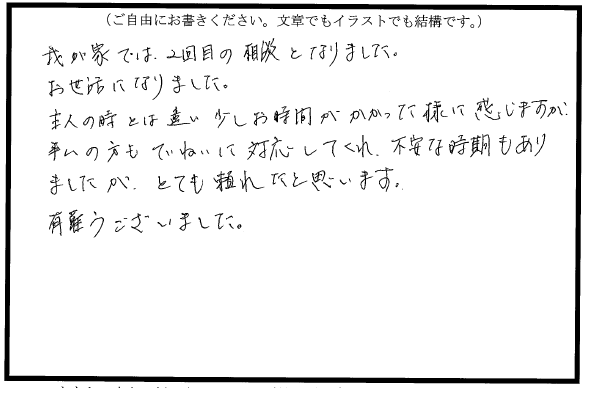 (ご自由にお書きください。文章でもイラストでも結構です。)
我が家では、2回目の相談となりました。
お世話になりました。
主人の時とは違い少しお時間がかかった様に感じますが、
私の方もていねいに対応してくれ、不安な時期もあり
ましたが、とても頼れたと思います。
有難うございました。